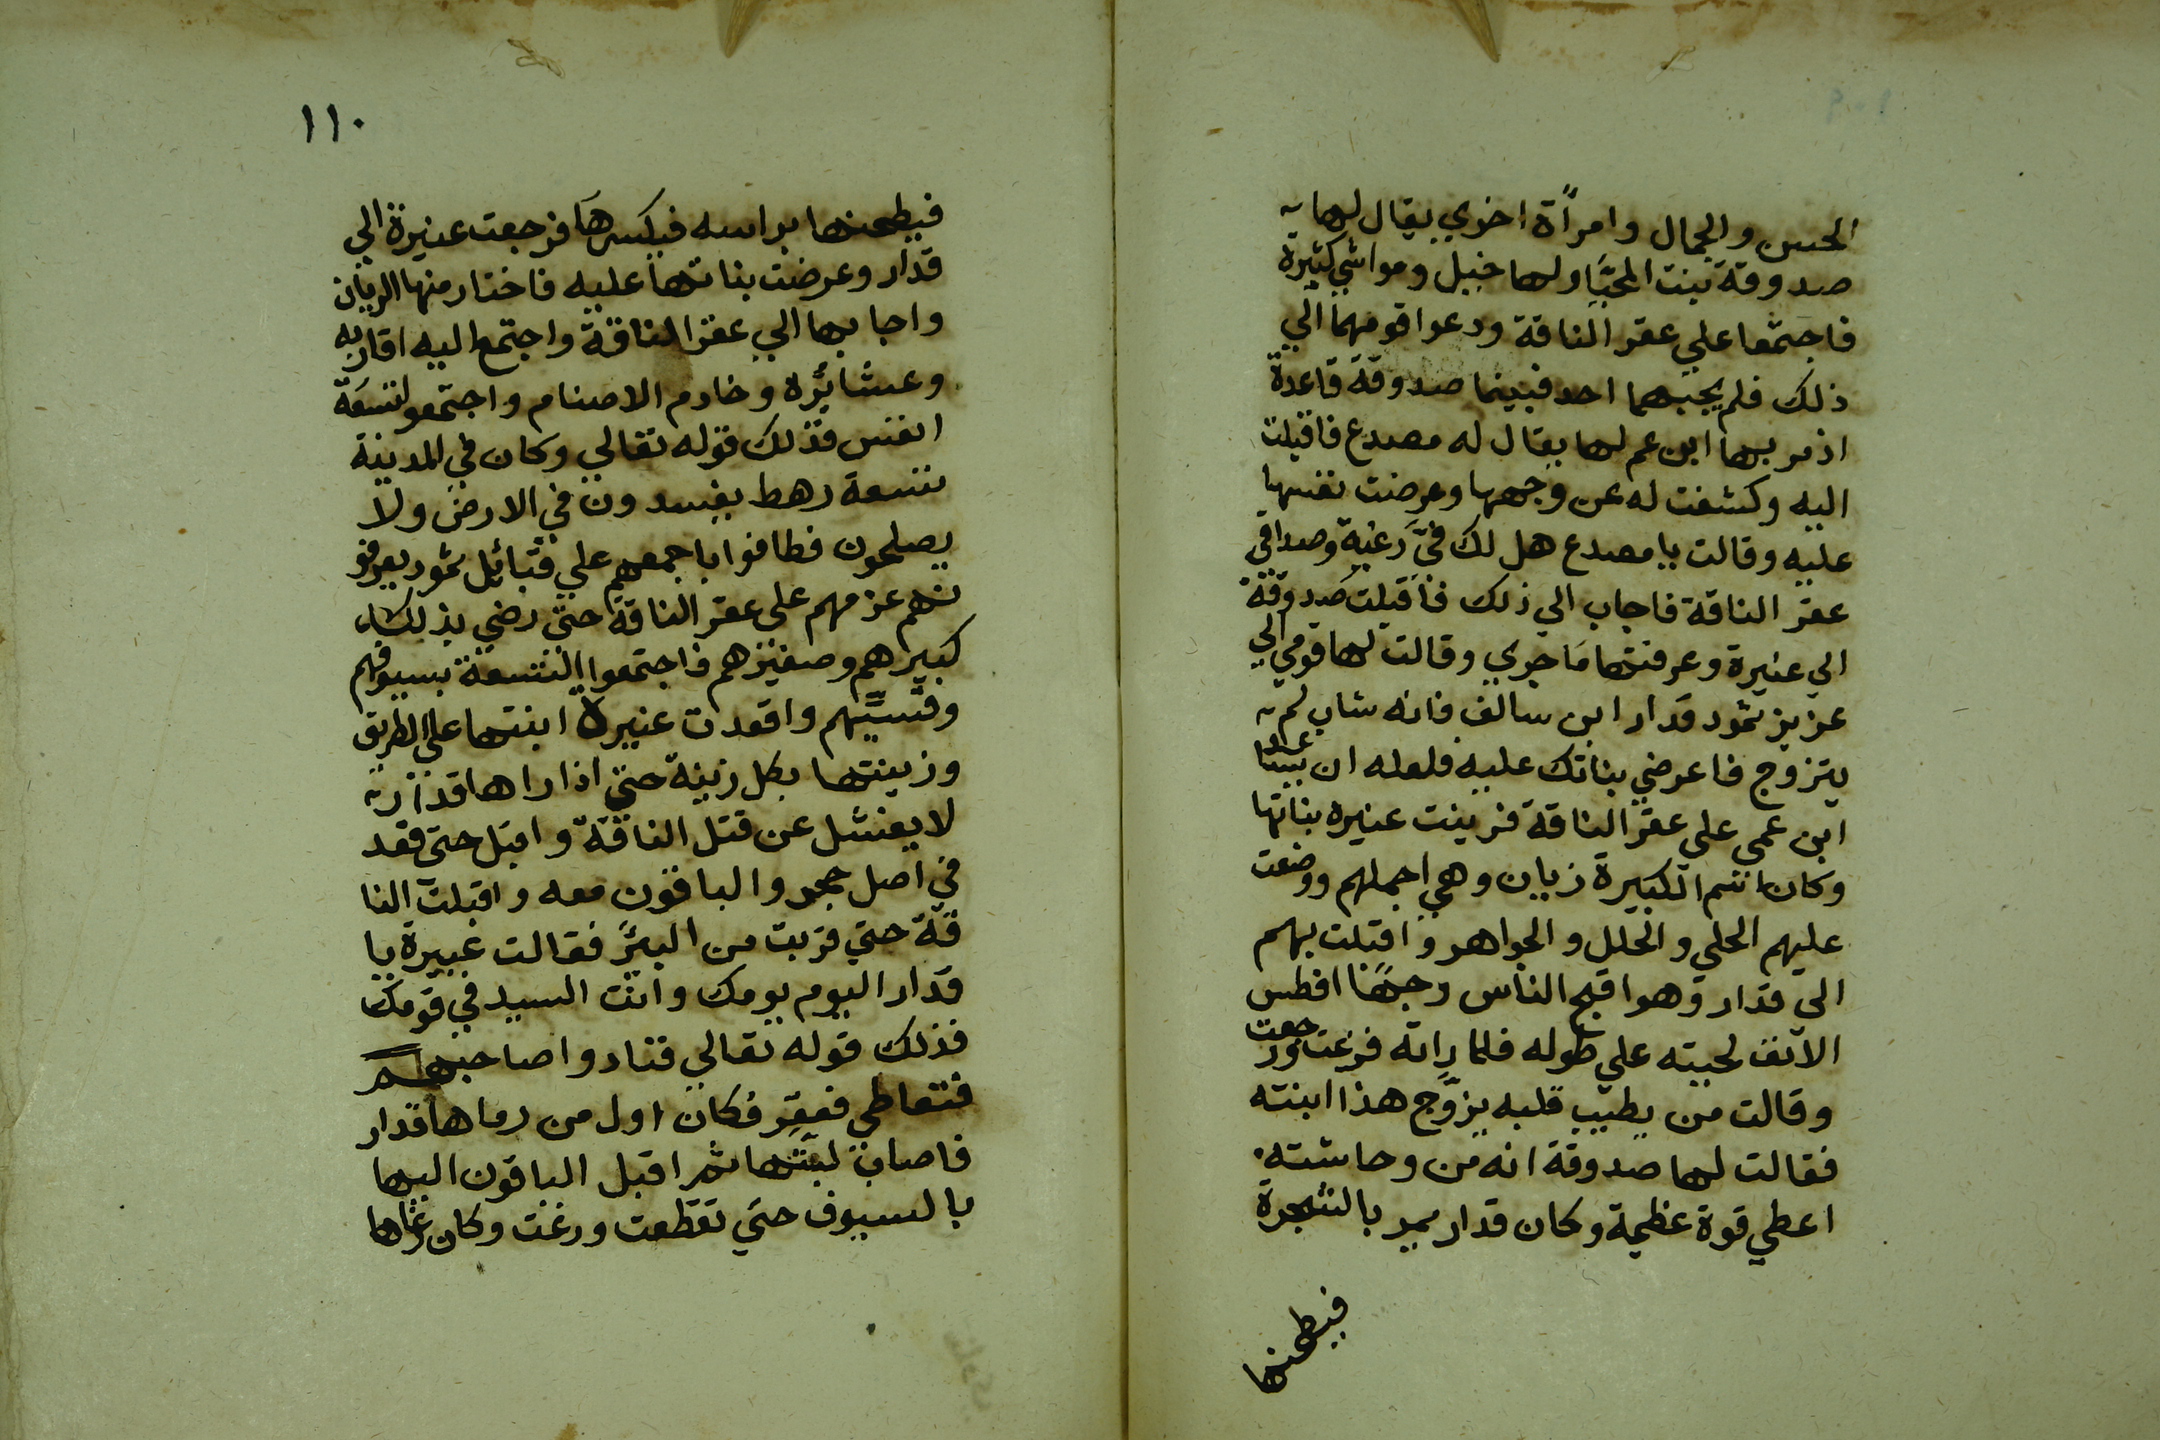 الحسن والجمال وامرأة اخري يقال لها
صدوقة بنت المحيا ولها خيل ومواشي كثيرة
فاجتمعا علي عقر الناقة ودعوا قومهما الي
ذلك فلم يجبهما احد فبينما صدوقة قاعدة
اذ مر بها ابن عم لها يقال له مصدع فاقبلت
اليه وكشفت له عن وجهها وعرضت نفسها
عليه وقالت يا مصدع هل لك فيَّ رغبة وصداقي
عقر الناقة فاجاب الي ذلك فاقبلت صدوقة
الي عنيزة وعرفتها ما جري وقالت لها قومي الي
عزيز ثمود قدار ابن سالف فانه شاب لم
يتزوج فاعرضي بناتك عليه فلعله ان
ابن عمي علي عقر الناقة فزينت عنيزه بناتها
وكان اسم الكبيرة زيان وهي اجملهم ووضعت
عليهم الحلي والحلل والجواهر واقبلت بهم
الي قدار وهو اقبح الناس وجهًا افطس
الانف لحيته علي طوله فلما راته فزعت ورجعت
وقالت من يطيب قلبه يزوّج هذا ابنته
فقالت لها صدوقة انه من وحاشته
اعطي قوة عظيمة وكان قدار يمر بالشجرة
فيطحنها
١١٠
فيطحنها براسه فيكسرها فرجعت عنيزة الي
قدار وعرضت بناتها عليه فاختار منها الريان
واجابها الي عقر الناقة واجتمع اليه اقاربه
وعشائره وخادم الاصنام واجتمعو لتسعة
انفس فذلك قوله تعالي وكان في المدينة
تسعة رهط يفسدون في الارض ولا
يصلحون فطافوا باجمعهم علي قبائل ثمود يعرفو
نهم عزمهم علي عقر الناقة حتي رضي بذلك
كبيرهم وصغيرهم فاجتمعوا التسعة بسيوفهم
وقسيّهم واقعدت عنيزة ابنتها علي الطريق
وزينتها بكل زينة حتي اذا راها قدار
لا يفشل عن قتل الناقة واقبل حتي قعد
في اصل حجر والباقون معه واقبلت النا
قة حتي قربت من البئر فقالت عنيزة يا
قدار اليوم يومك وانت السيد في قومك
فذلك قوله تعالي فنادوا صاحبهم
فتعاطي فعقر فكان اول من رماها قدار
فاصاب لبتها ثم اقبل الباقون اليها
بالسيوف حتي تقطعت ورغت وكان رغاها